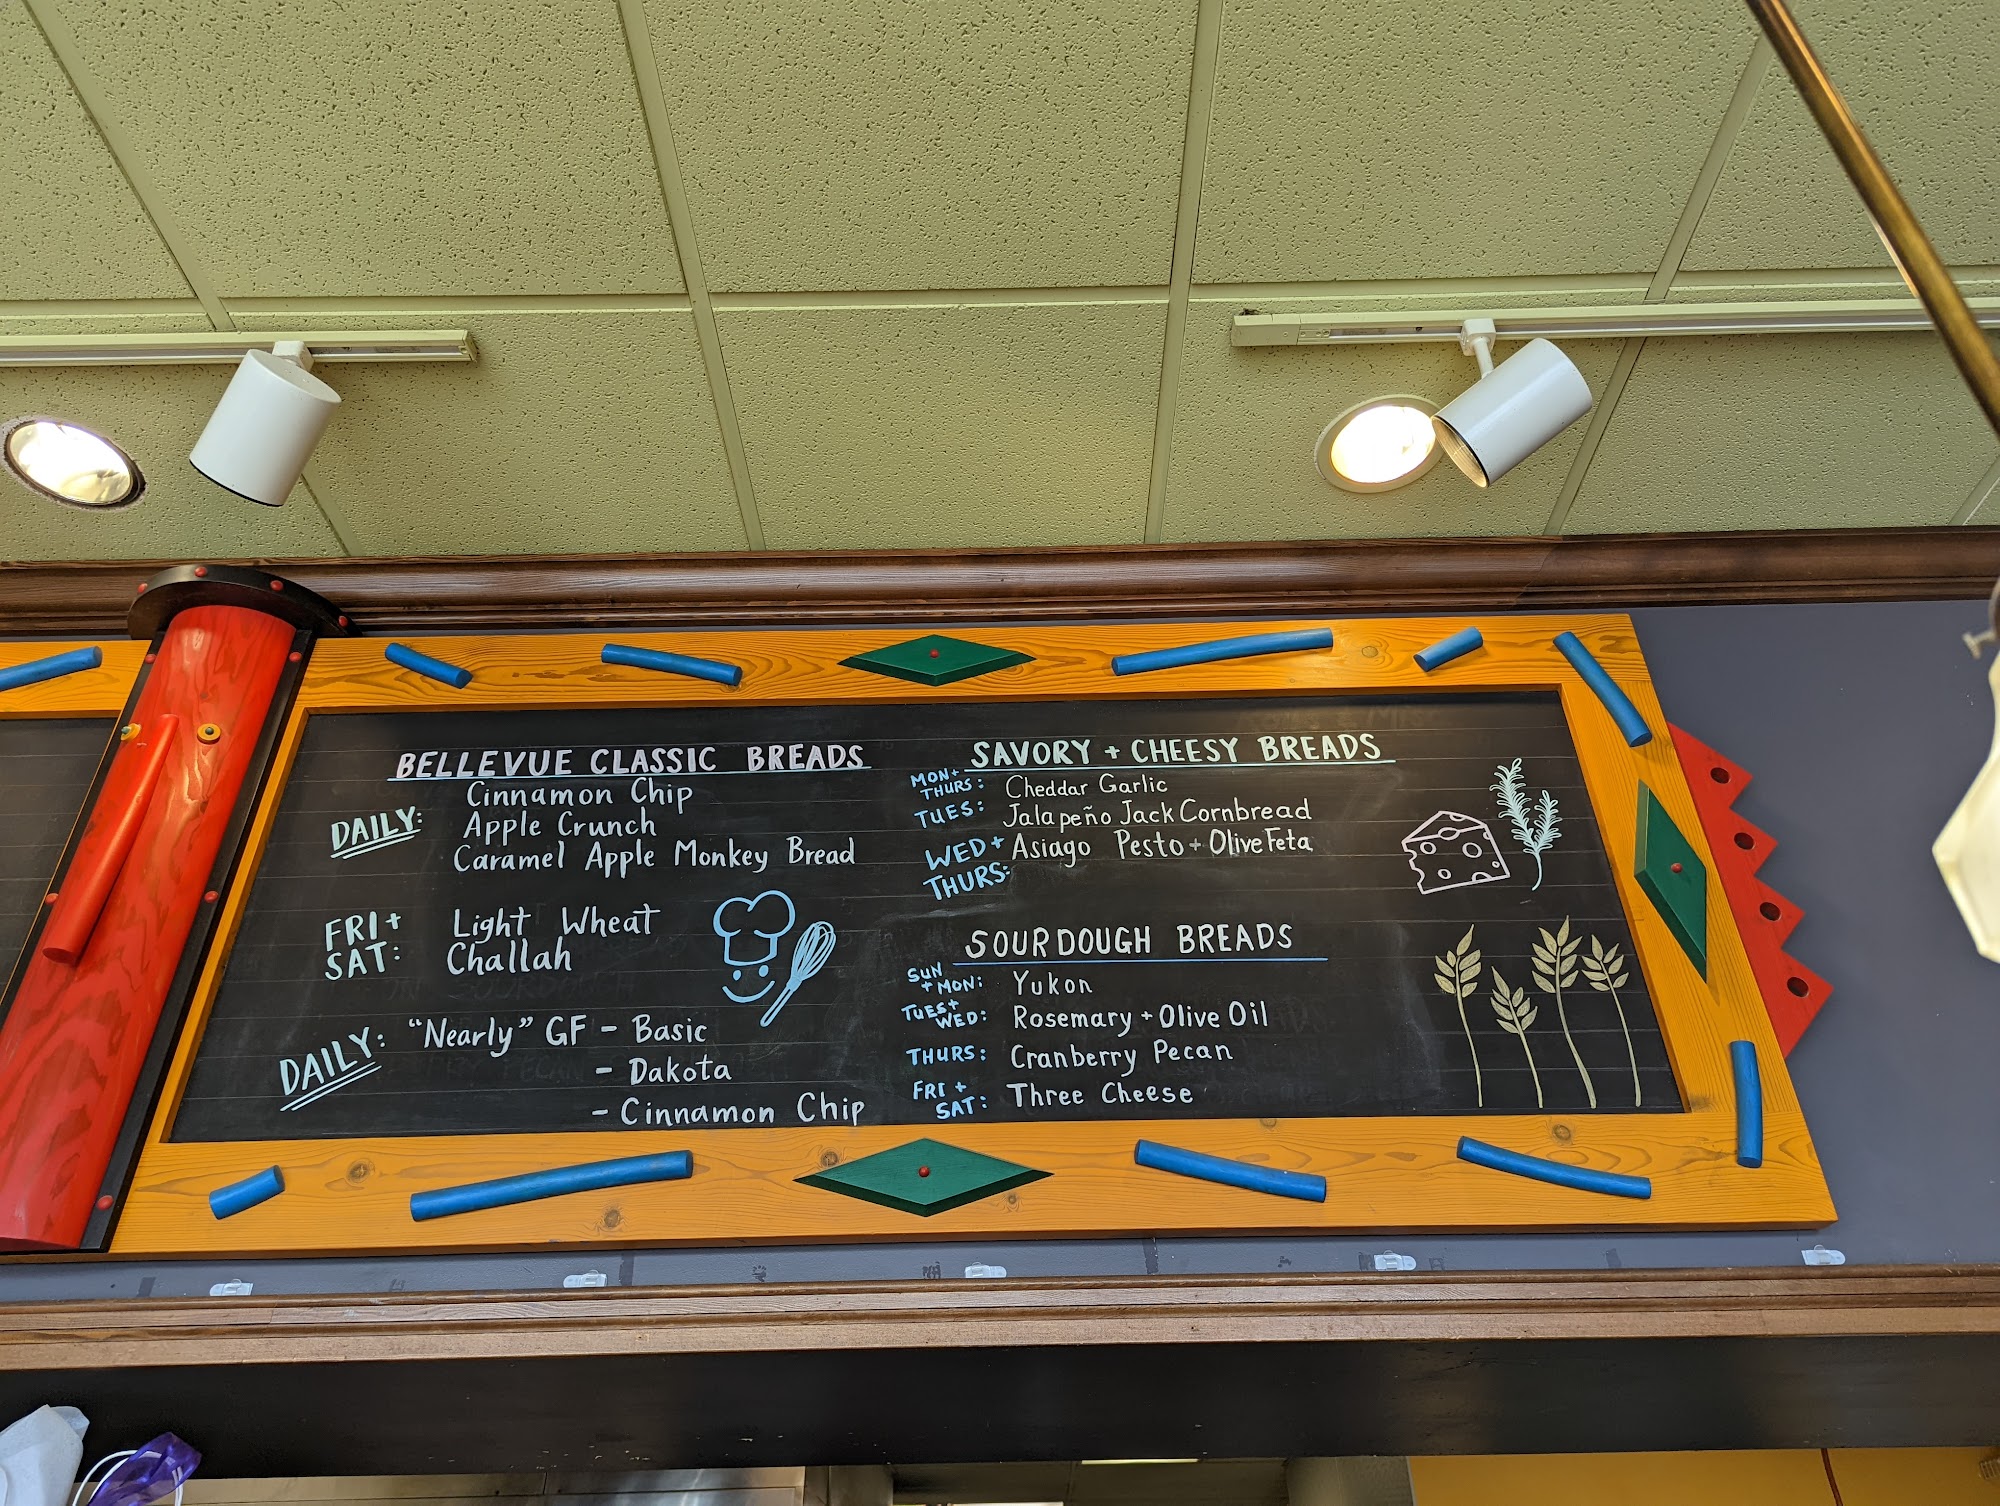 BELLEVUE CLASSIC BREADS
DAILY:
Cinnamon Chip
Apple Crunch
Caramel Apple Monkey Bread
FRI +
SAT:
Light Wheat
Challah
DAILY: "Nearly" GF - Basic
- Dakota
- Cinnamon Chip
SAVORY + CHEESY BREADS
MON+
THURS: Cheddar Garlic
TUES: Jalapeño Jack Cornbread
WED + Asiago Pesto + Olive Feta
THURS:
SOURDOUGH BREADS
SUN
+ MON: Yukon
TUES+
WED: Rosemary + Olive Oil
THURS: Cranberry Pecan
FRI +
SAT: Three Cheese